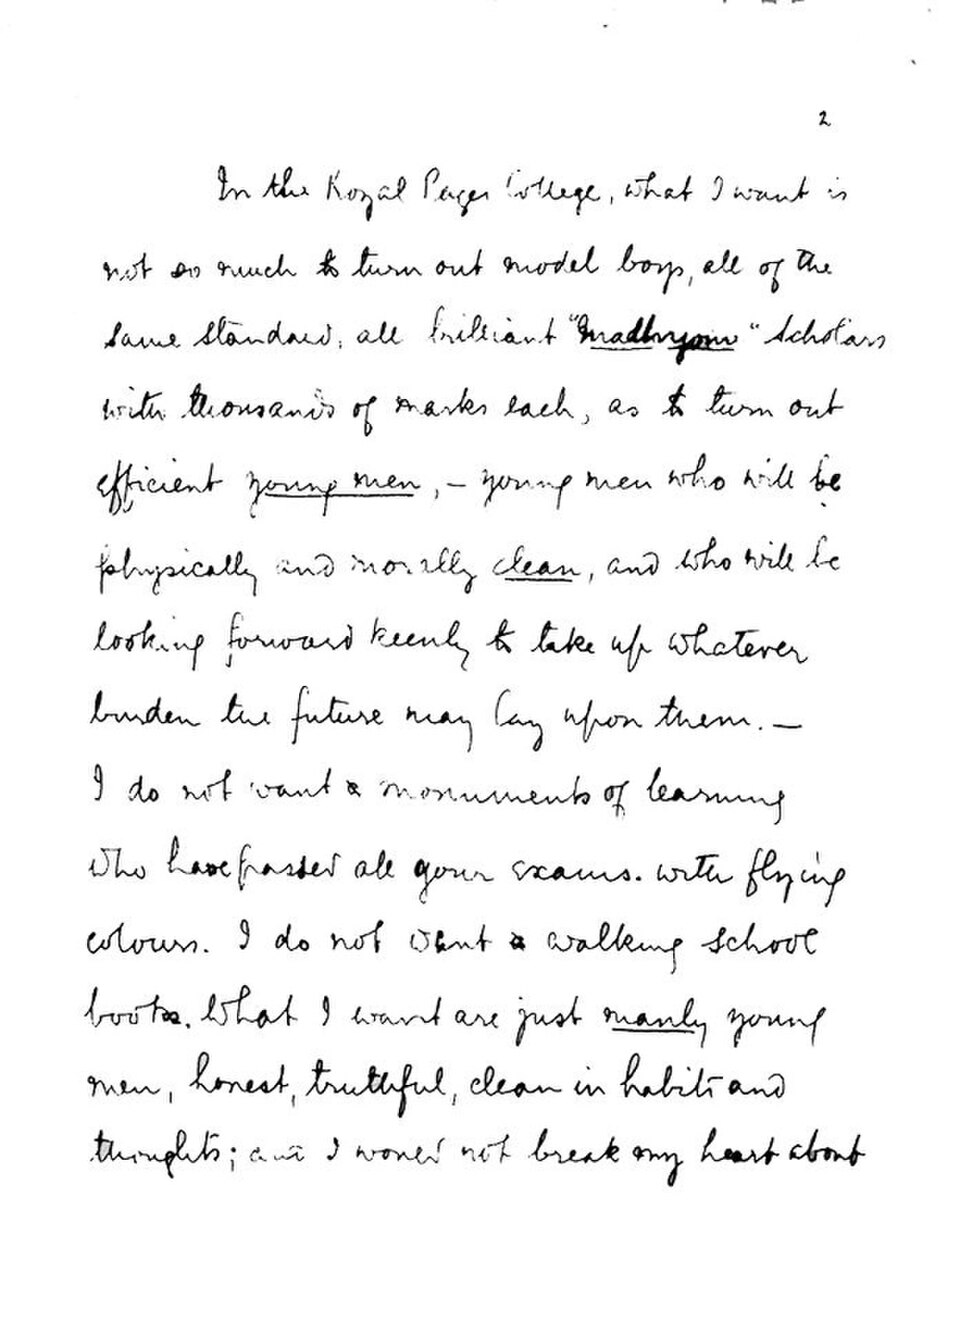 2
In the Royal Pages College, what I want is
not so much to turn out model boys, all of the
same standard, all brilliant "Madhyom" Scholars
with thousands of marks each, as to turn out
efficient young men, – young men who will be
physically and morally clean, and who will be
looking forward keenly to take up whatever
burden the future may lay upon them. –
I do not want a monuments of learning
who have passed all your exams. with flying
colours. I do not want a walking school
books. What I want are just manly young
men, honest, truthful, clean in habits and
thoughts; and I would not break my heart about